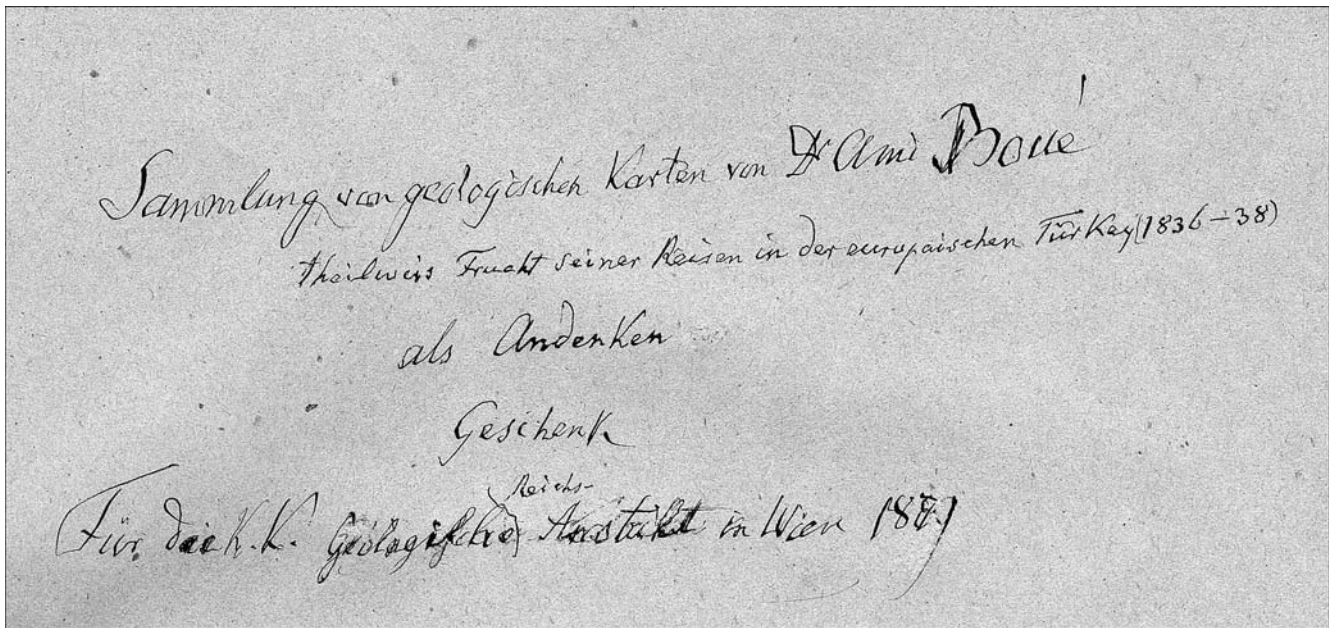 Sammlung von geologischen Karten von Dr Ami Boué
theilweis Frucht seiner Reisen in der europaischen Türkey (1836–38)
als Andenken
Geschenk
Reichs-
Für die K.K. Geologische Anstalt in Wien